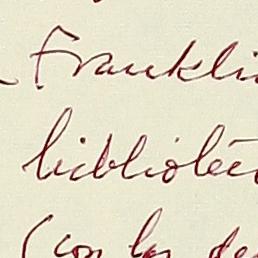 Franklin
bibliotec
(con los de